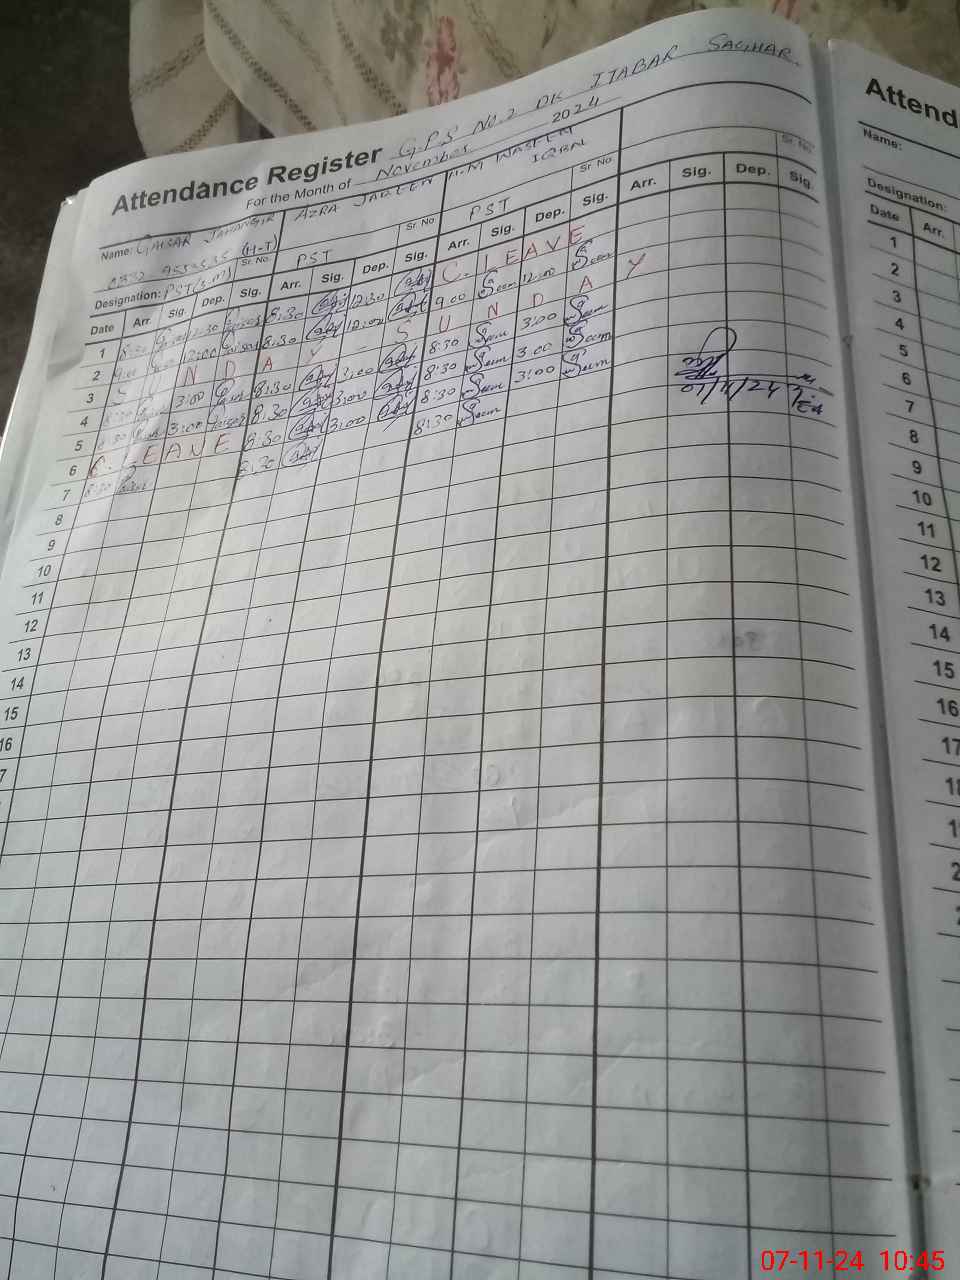 Attendance Register G.P.S No.2 DK ITABAR SAGHAR.
For the Month of November 2024
Name: QAISAR JAHANGIR (H-T) AZRA JABEEN H.M WASEEM IQBAL
Designation: PST PST PST
Sr. No. Sr. No Sr. No Sr. No.
Date Arr. Sig. Dep. Sig. Arr. Sig. Dep. Sig. Arr. Sig. Dep. Sig. Arr. Sig. Dep. Sig.
1 8:30 12:30 8:30 12:30 C. LEAVE
2 9:00 12:00 8:30 12:00 9:00 12:00
3 S U N D A Y - S U N D A Y
4 8:30 3:00 8:30 3:00 8:30 3:00
5 8:30 3:00 8:30 3:00 8:30 3:00
6 C. LEAVE 8:30 3:00 8:30 3:00
7 8:30 8:30 8:30
07/11/24
8
9
10
11
12
13
14
15
16
7
Attend
Name:
Designation:
Date Arr.
1
2
3
4
5
6
7
8
9
10
11
12
13
14
15
16
17
18
07-11-24 10:45